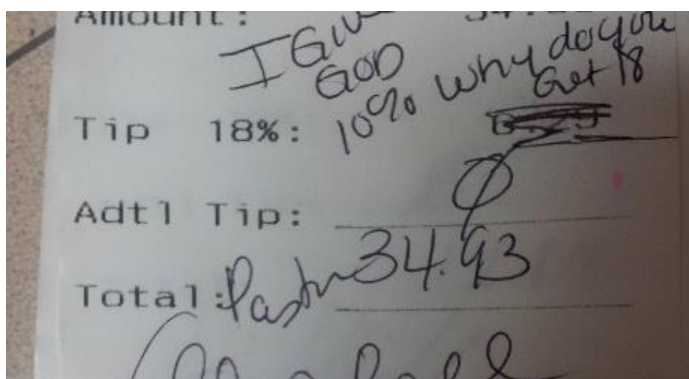 Amount:
I Give
GOD
10% why do you
Get 18
Tip 18%:
Adtl Tip: 0
Total: Pastor 34.93